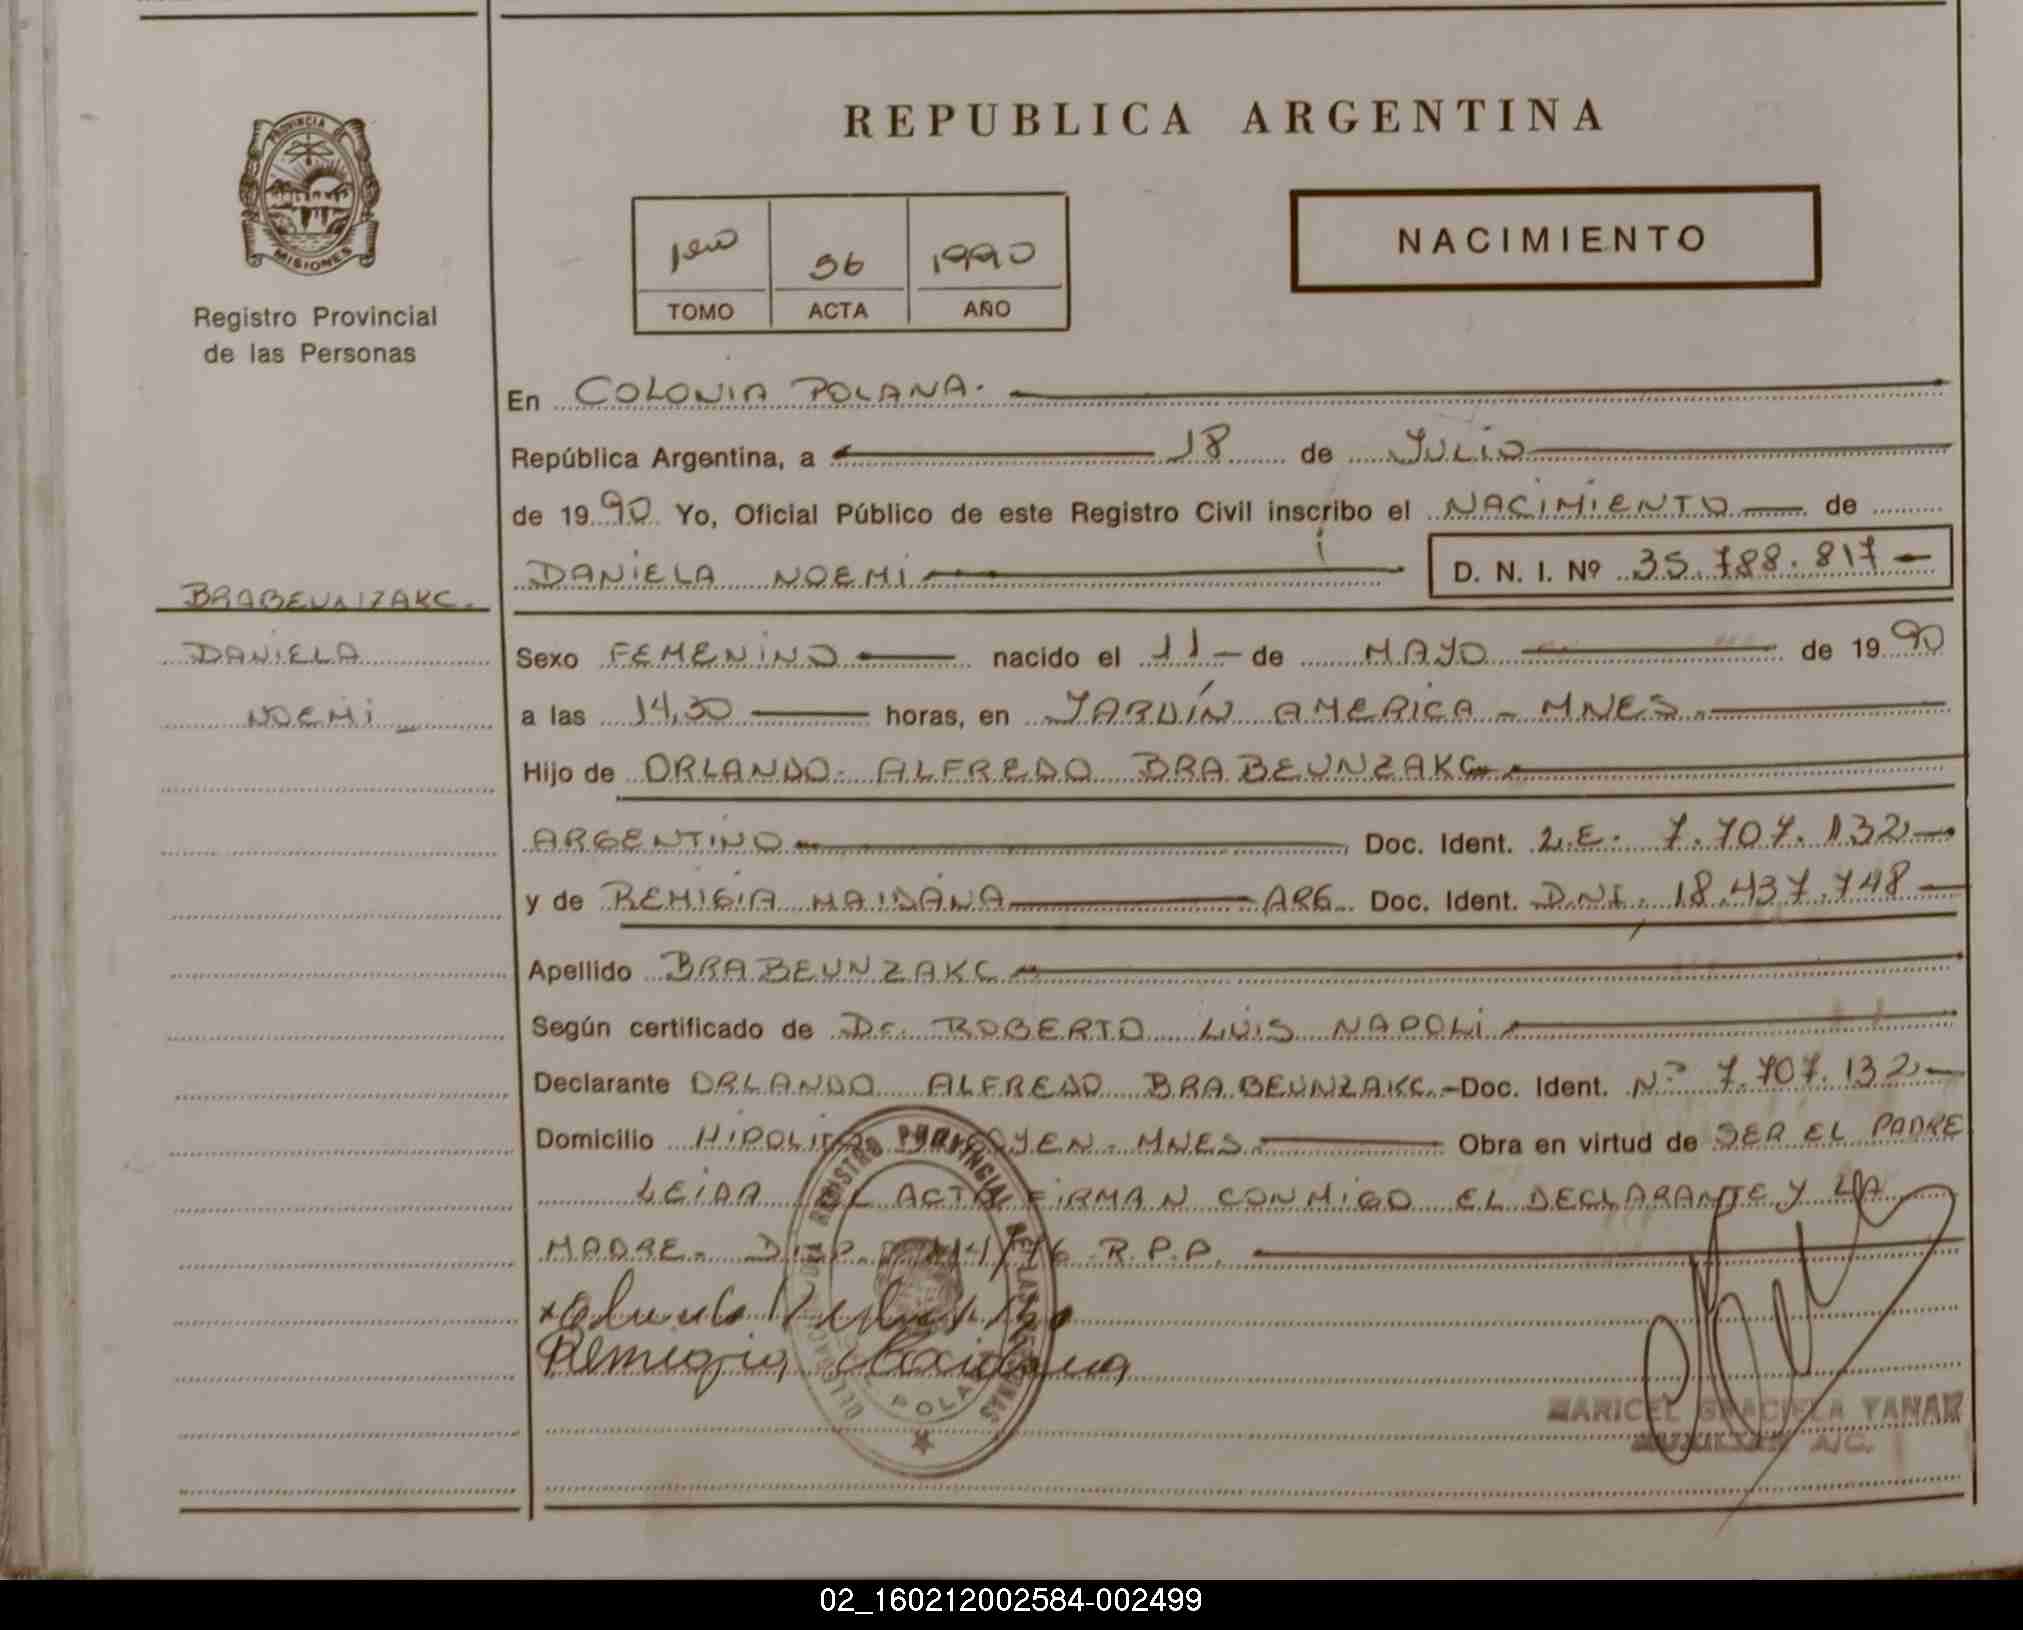 REPUBLICA ARGENTINA
PROVINCIA DE
MISIONES
Registro Provincial
de las Personas
1ero 56 1990
TOMO ACTA AÑO
NACIMIENTO
En COLONIA POLANA.
República Argentina, a 18 de JULIO
de 1990 Yo, Oficial Público de este Registro Civil inscribo el NACIMIENTO de
DANIELA NOEMI D. N. I. Nº 35.788.817
BRABEUNIZAKC.
DANIELA
NOEMI
Sexo FEMENINO nacido el 11 de MAYO de 1990
a las 14,30 horas, en JARDÍN AMERICA - MNES.
Hijo de ORLANDO ALFREDO BRABEUNZAKC
ARGENTINO Doc. Ident. L.E. 7.707.132
y de REMIGIA MAIDANA ARG. Doc. Ident. D.N.I. 18.437.748
Apellido BRABEUNZAKC
Según certificado de Dr. ROBERTO LUIS NAPOLI
Declarante ORLANDO ALFREDO BRABEUNZAKC.- Doc. Ident. Nº 7.707.132
Domicilio MNES. Obra en virtud de SER EL PADRE
LEIDA ACTA FIRMAN CONMIGO EL DECLARANTE Y LA
MADRE. R.P.P.
Remigia Maidana
REGISTRO PROVINCIAL DE LAS PERSONAS
MARICEL GRACIELA YANAK
AUXILIAR A/C.
02_160212002584-002499